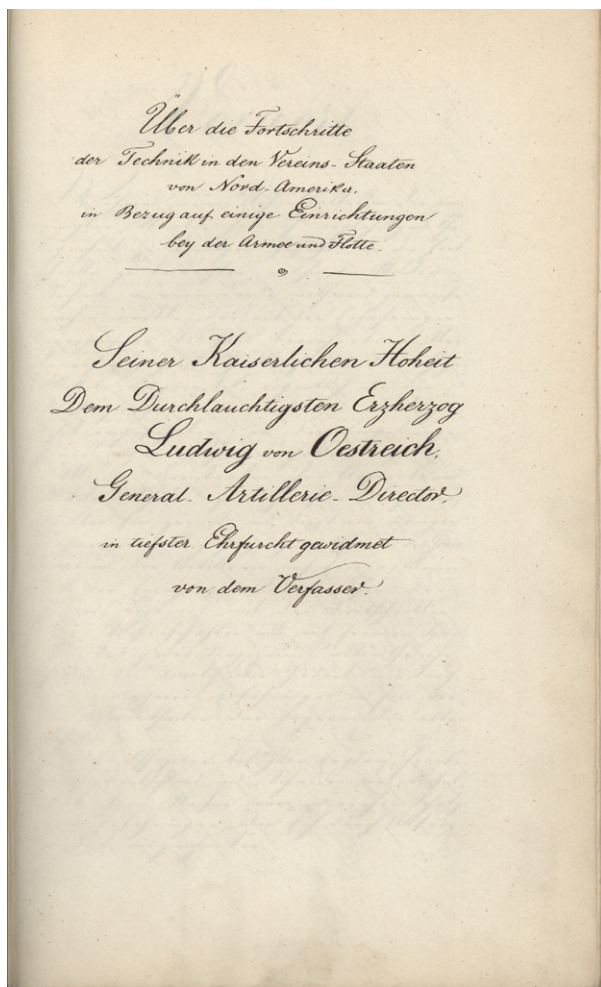 Über die Fortschritte
der Technik in den Vereins-Staaten
von Nord-Amerika,
in Bezug auf einige Einrichtungen
bey der Armee und Flotte.
Seiner Kaiserlichen Hoheit
Dem Durchlauchtigsten Erzherzog
Ludwig von Oestreich,
General-Artillerie-Director,
in tiefster Ehrfurcht gewidmet
von dem Verfasser.